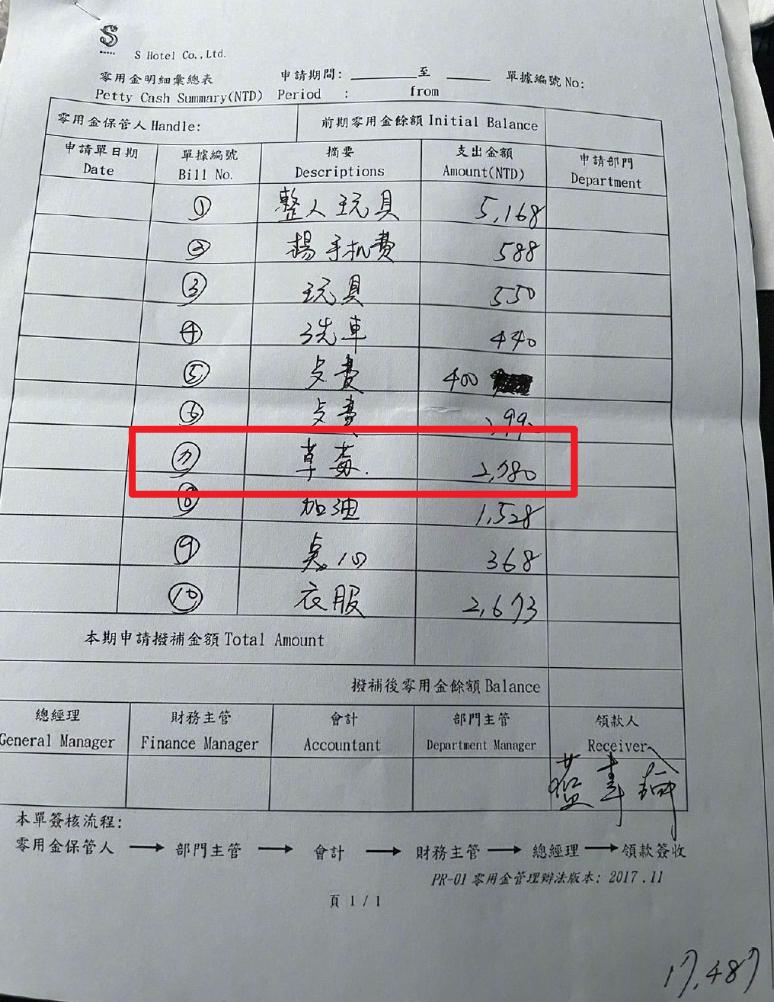 S
S Hotel Co.,Ltd.
零用金明細彙總表 申請期間: 至 單據編號 No:
Petty Cash Summary(NTD) Period : from
零用金保管人 Handle: 前期零用金餘額 Initial Balance
申請單日期 單據編號 摘要 支出金額 申請部門
Date Bill No. Descriptions Amount(NTD) Department
① 整人玩具 5,168
② 楊手机費 588
③ 玩具 550
④ 洗車 440
⑤ 費 400
⑥ 費
⑦ 草莓. 2,780
⑧ 加油 1,528
⑨ 點心 368
⑩ 衣服 2,673
本期申請撥補金額 Total Amount
撥補後零用金餘額 Balance
總經理 財務主管 會計 部門主管 領款人
General Manager Finance Manager Accountant Department Manager Receiver
本單簽核流程:
零用金保管人 → 部門主管 → 會計 → 財務主管 → 總經理 → 領款簽收
PR-01 零用金管理辦法版本: 2017.11
頁 1 / 1
17,487